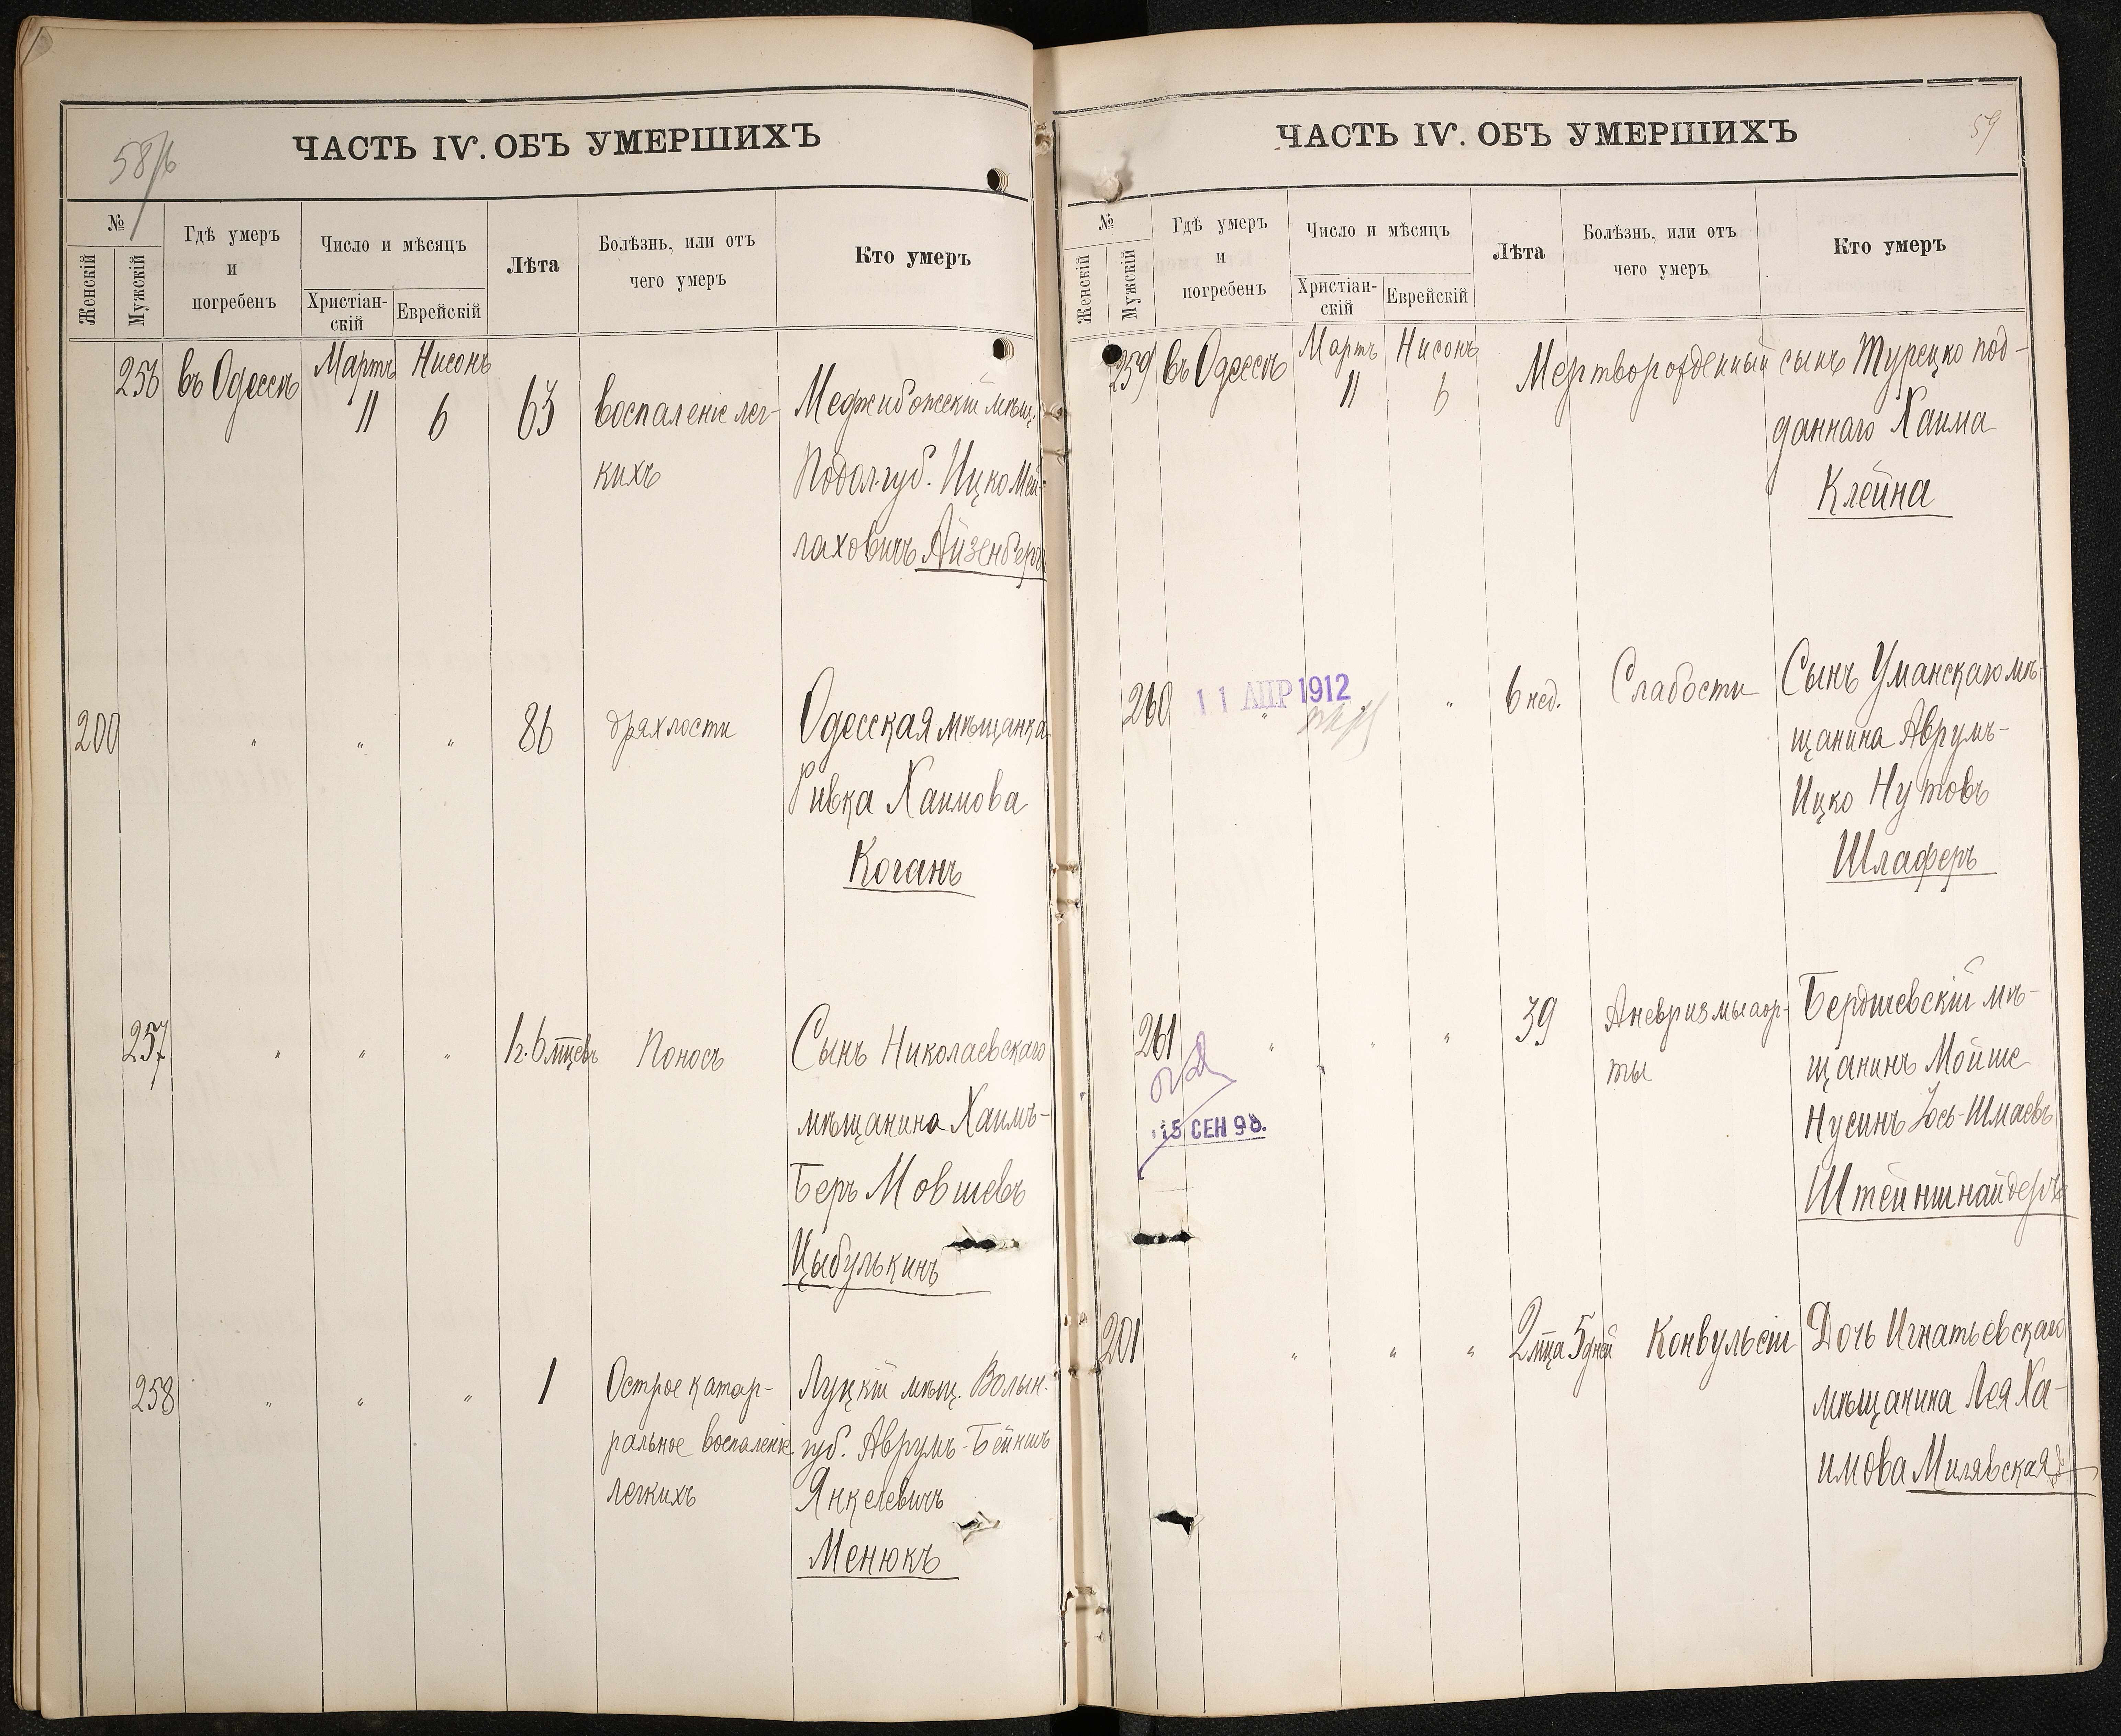 58/б
ЧАСТЬ IV. ОБЪ УМЕРШИХЪ
№
Женскій
Мужскій
Гдѣ умеръ
и
погребенъ
Число и мѣсяцъ
Христіан-
скій
Еврейскій
Лѣта
Болѣзнь, или отъ
чего умеръ
Кто умеръ
256 въ Одессѣ Мартъ 11 Нисонъ 6 63
воспаленіе лег-
кихъ
Меджибожскій мѣщ.
Подол. губ. Ицко Мей-
лаховичъ Айзенбергъ
200 " " " 86 дряхлости
Одесская мѣщанка
Ривка Хаимова
Коганъ
257 " " " 1 г. 6 мцевъ Поносъ
Сынъ Николаевскаго
мѣщанина Хаимъ-
Беръ Мовшевъ
Цыбулькинъ
258 " " " 1
Острое катар-
ральное воспаленіе
легкихъ
Луцкій мѣщ. Волын.
губ. Аврумъ-Бейнишъ
Янкелевичъ
Менюкъ
59
ЧАСТЬ IV. ОБЪ УМЕРШИХЪ
№
Женскій
Мужскій
Гдѣ умеръ
и
погребенъ
Число и мѣсяцъ
Христіан-
скій
Еврейскій
Лѣта
Болѣзнь, или отъ
чего умеръ
Кто умеръ
259 въ Одессѣ Мартъ 11 Нисонъ 6
Мертворожденный сынъ Турецко под-
даннаго Хаима
Клейна
260 11 АПР 1912 " " 6 нед. Слабости
Сынъ Уманскаго мѣ-
щанина Аврумъ-
Ицко Нутовъ
Шлаферъ
261 " " " 39
Аневризмы аор-
ты
Бердичевскій мѣ-
щанинъ Мойше
Нусинъ Іось-Шмаевъ
Штейншнайдеръ
15 СЕН 98.
201 " " " 2 мца 5 дней Конвульсіи
Дочь Игнатьевскаго
мѣщанина Лея Ха-
имова Милявская